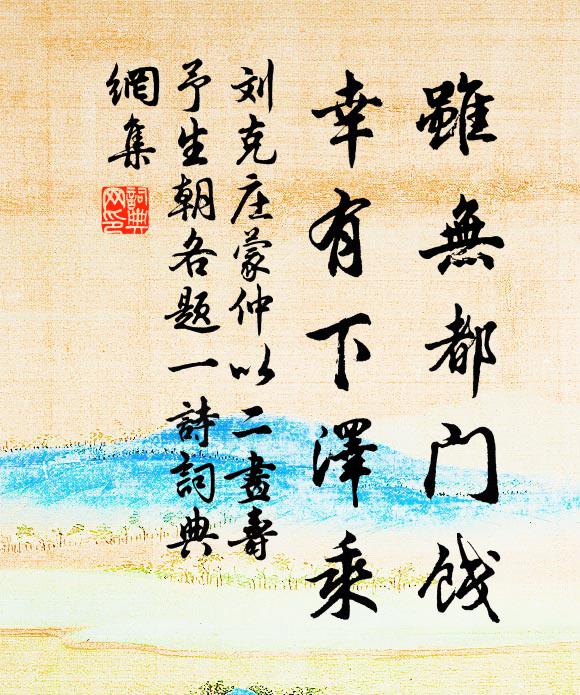 雖無都门餞
幸有下澤乘
刘克庄蒙仲以二畫壽
予生朝各题一詩詞典
網集
詞典网印